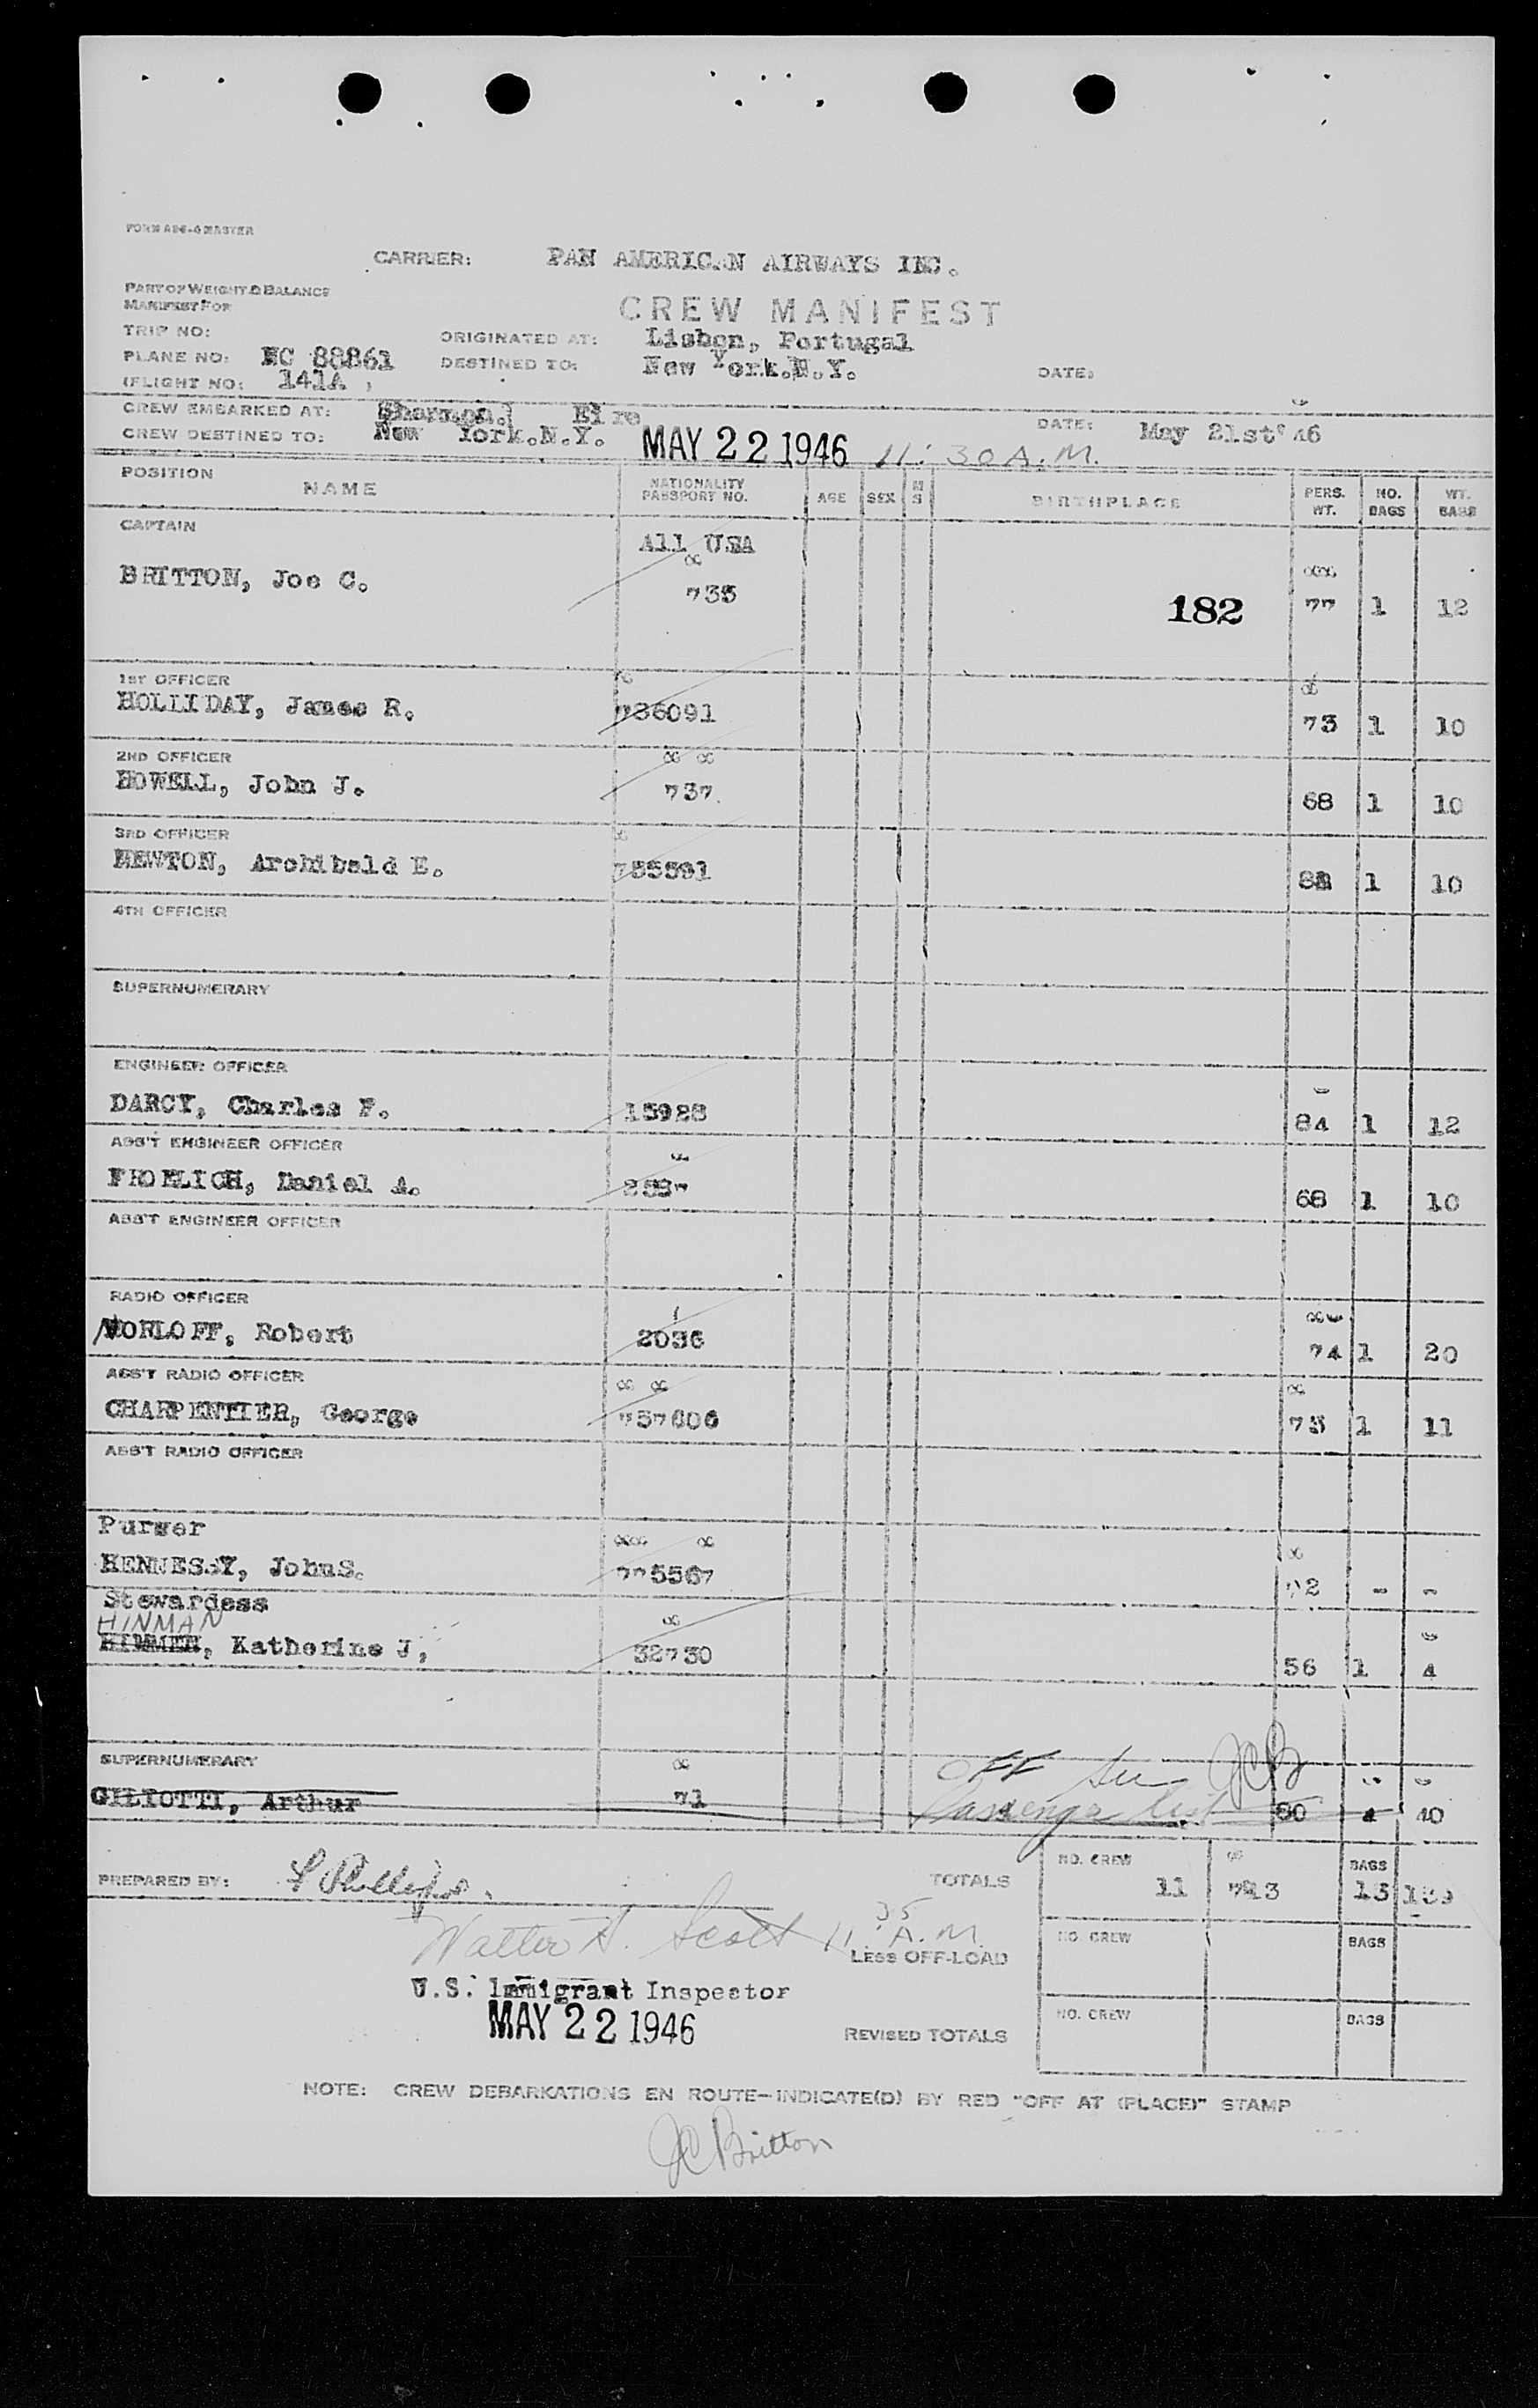 FORM A26-4 MASTER
CARRIER: PAN AMERICAN AIRWAYS INC.
PART OF WEIGHT & BALANCE
MANIFEST FOR
CREW MANIFEST
TRIP NO: ORIGINATED AT: Lisbon, Portugal
PLANE NO: NC 88861 DESTINED TO: New York.N.Y. DATE:
(FLIGHT NO: 141A )
CREW EMBARKED AT: Shannon. Eire
CREW DESTINED TO: New York.N.Y. MAY 22 1946 11:30 A.M. DATE: May 21st'46
POSITION NAME NATIONALITY PASSPORT NO. AGE SEX M S BIRTHPLACE PERS. WT. NO. BAGS WT. BAGS
CAPTAIN All USA
BRITTON, Joe C. 735 182 77 1 12
1ST OFFICER
HOLLIDAY, James R. 736091 73 1 10
2ND OFFICER
HOWELL, John J. 737 68 1 10
3RD OFFICER
NEWTON, Archibald E. 1 10
4TH OFFICER
SUPERNUMERARY
ENGINEER OFFICER
DARCY, Charles F. 15928 84 1 12
ASS'T ENGINEER OFFICER
FROELICH, Daniel A. 68 1 10
ASS'T ENGINEER OFFICER
RADIO OFFICER
WORLOFF, Robert 2036 74 1 20
ASS'T RADIO OFFICER
CHARPENTIER, George 757606 75 1 11
ASS'T RADIO OFFICER
Purser
HENNESSY, JohnS. 775567 - -
Stewardess
HINMAN
HIMMEN, Katherine J, 32730 56 1 4
SUPERNUMERARY Off See JCB
GILIOTTI, Arthur 71 Passenger List 80 4 40
PREPARED BY: TOTALS NO. CREW 11 BAGS 13
Walter A. Scott 11:35 A.M.
LESS OFF-LOAD NO. CREW BAGS
U.S. Immigrant Inspector
MAY 22 1946
REVISED TOTALS NO. CREW BAGS
NOTE: CREW DEBARKATIONS EN ROUTE-INDICATE(D) BY RED "OFF AT (PLACE)" STAMP
JC Britton